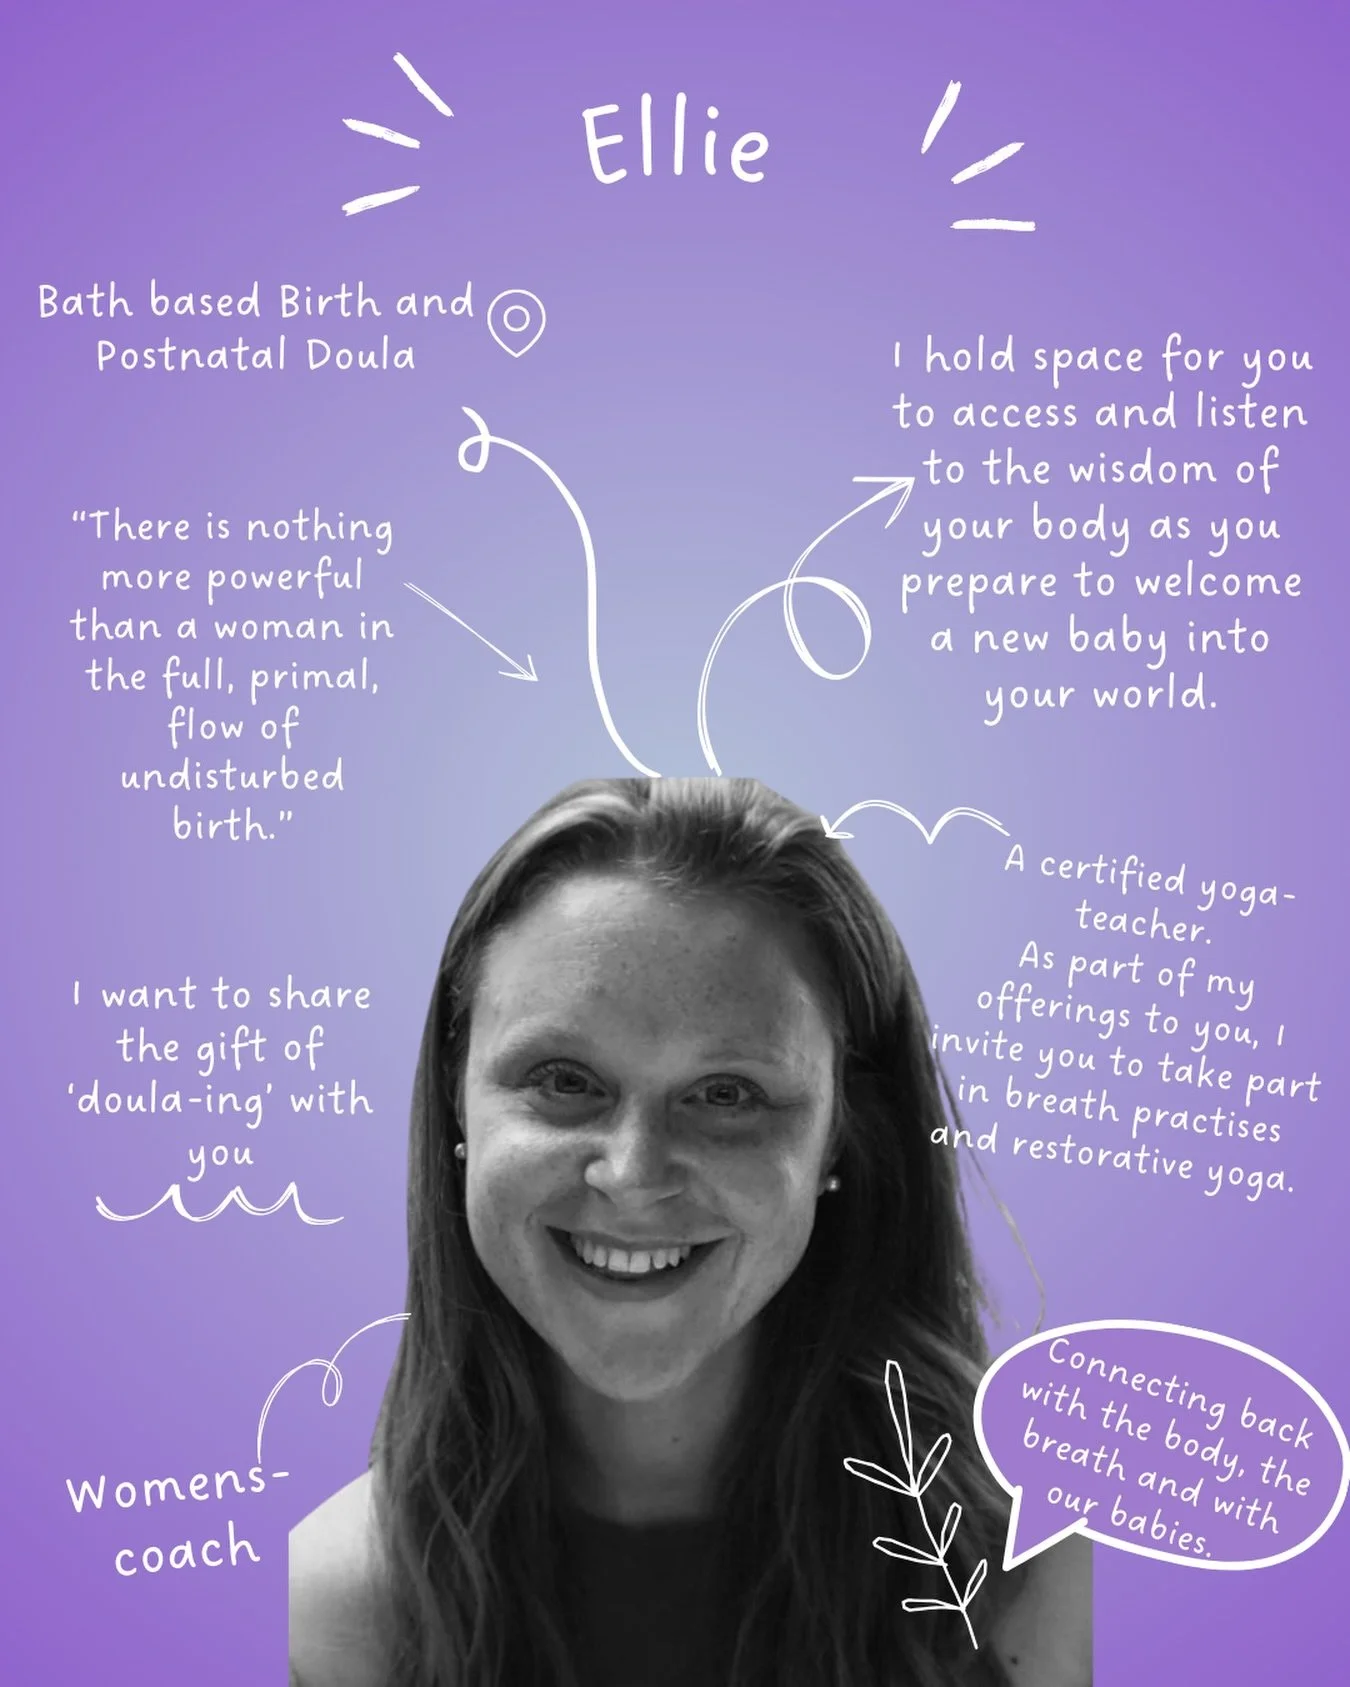 Ellie
Bath based Birth and
Postnatal Doula
I hold space for you
to access and listen
to the wisdom of
your body as you
prepare to welcome
a new baby into
your world.
“There is nothing
more powerful
than a woman in
the full, primal,
flow of
undisturbed
birth.”
A certified yoga-
teacher.
As part of my
offerings to you, I
invite you to take part
in breath practises
and restorative yoga.
I want to share
the gift of
‘doula-ing’ with
you
Womens-
coach
Connecting back
with the body, the
breath and with
our babies.